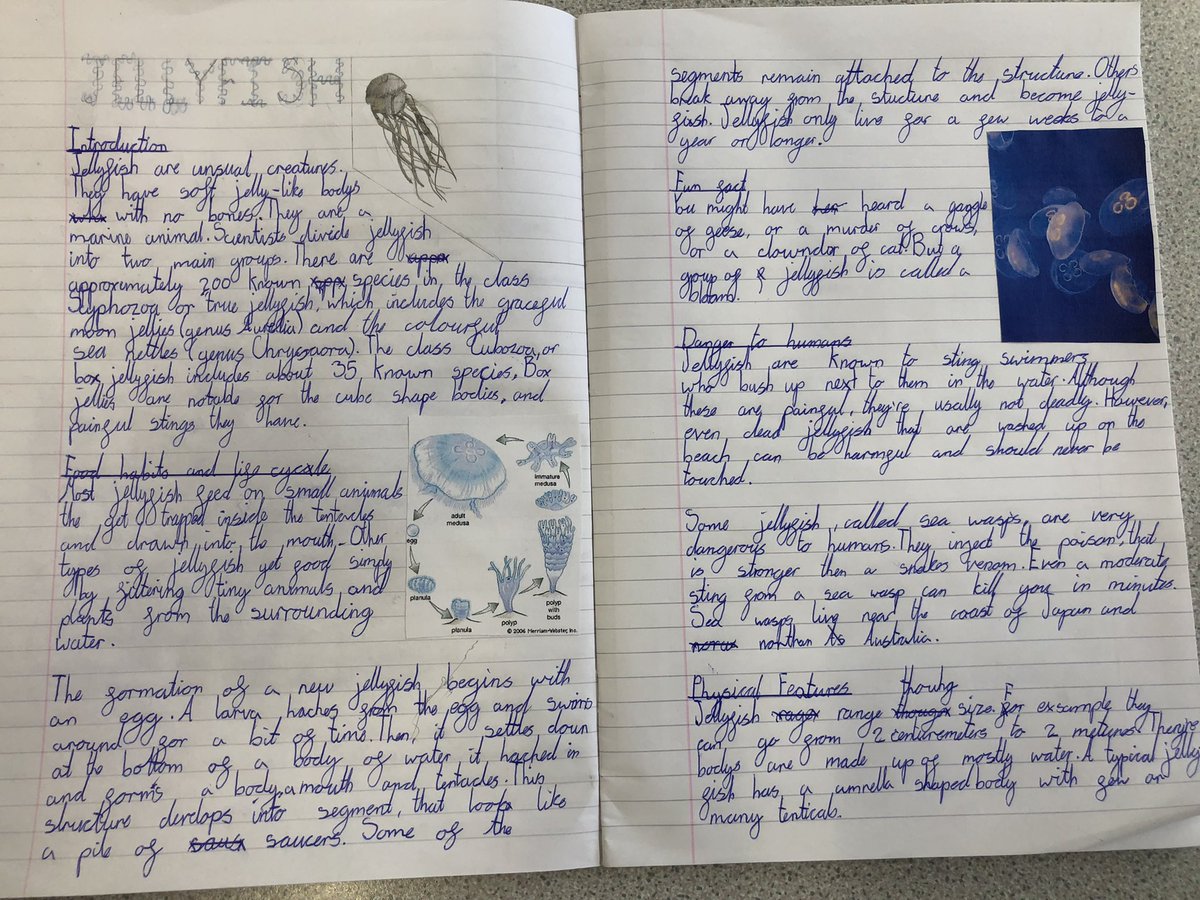 JELLYFISH
Introduction
Jellyfish are unusual creatures.
They have soft jelly-like bodys
with no bones. They are a
marine animal. Scientists divide jellyfish
into two main groups. There are
approximately 200 known species in the class
Scyphozoa or true jellyfish, which includes the graceful
moon jellies (genus Aurelia) and the colourful
sea nettles (genus Chrysaora). The class Cubozoa, or
box jellyfish includes about 35 known species, Box
jellies are notable for the cube shape bodies, and
painful stings they have.
Food habits and life cycle
Most jellyfish feed on small animals
the got trapped inside the tentacles
and drawn into the mouth. Other
types of jellyfish get food simply
by filtering tiny animals and
plants from the surrounding
water.
adult medusa
immature medusa
egg
planula
planula
polyp
polyp with buds
© 2006 Merriam-Webster, Inc.
The formation of a new jellyfish begins with
an egg. A larva haches from the egg and swims
around for a bit of time. Then, it settles down
at the bottom of a body of water it hached in
and forms a body, a mouth and tentacles. This
structure develops into segment, that look like
a pile of saucers. Some of the
segments remain attached to the structure. Others
break away from the stucture and become jelly-
fish. Jellyfish only live for a few weeks to a
year or longer.
Fun fact
You might have heard a gaggle
of geese, or a murder of crows,
or a clowndor of cat. But a
group of jellyfish is called a
bloom.
Danger to humans
Jellyfish are known to sting swimmers
who bush up next to them in the water. Although
these are painful, they're usally not deadly. However,
even dead jellyfish that are washed up on the
beach can be harmful and should never be
touched.
Some jellyfish, called sea wasps, are very
dangerous to humans. They inject the poison, that
is stronger then a snakes venom. Even a moderate
sting from a sea wasp can kill you in minutes.
Sea wasps live near the coast of Japan and
northan Australia.
Physical Features
Jellyfish range thouhg size. For exsample they
can go from 2 centuremeters to 2 meteres. There
bodys are made up of mostly water. A typical jelly
fish has a umrella shaped body with few or
many tenticals.